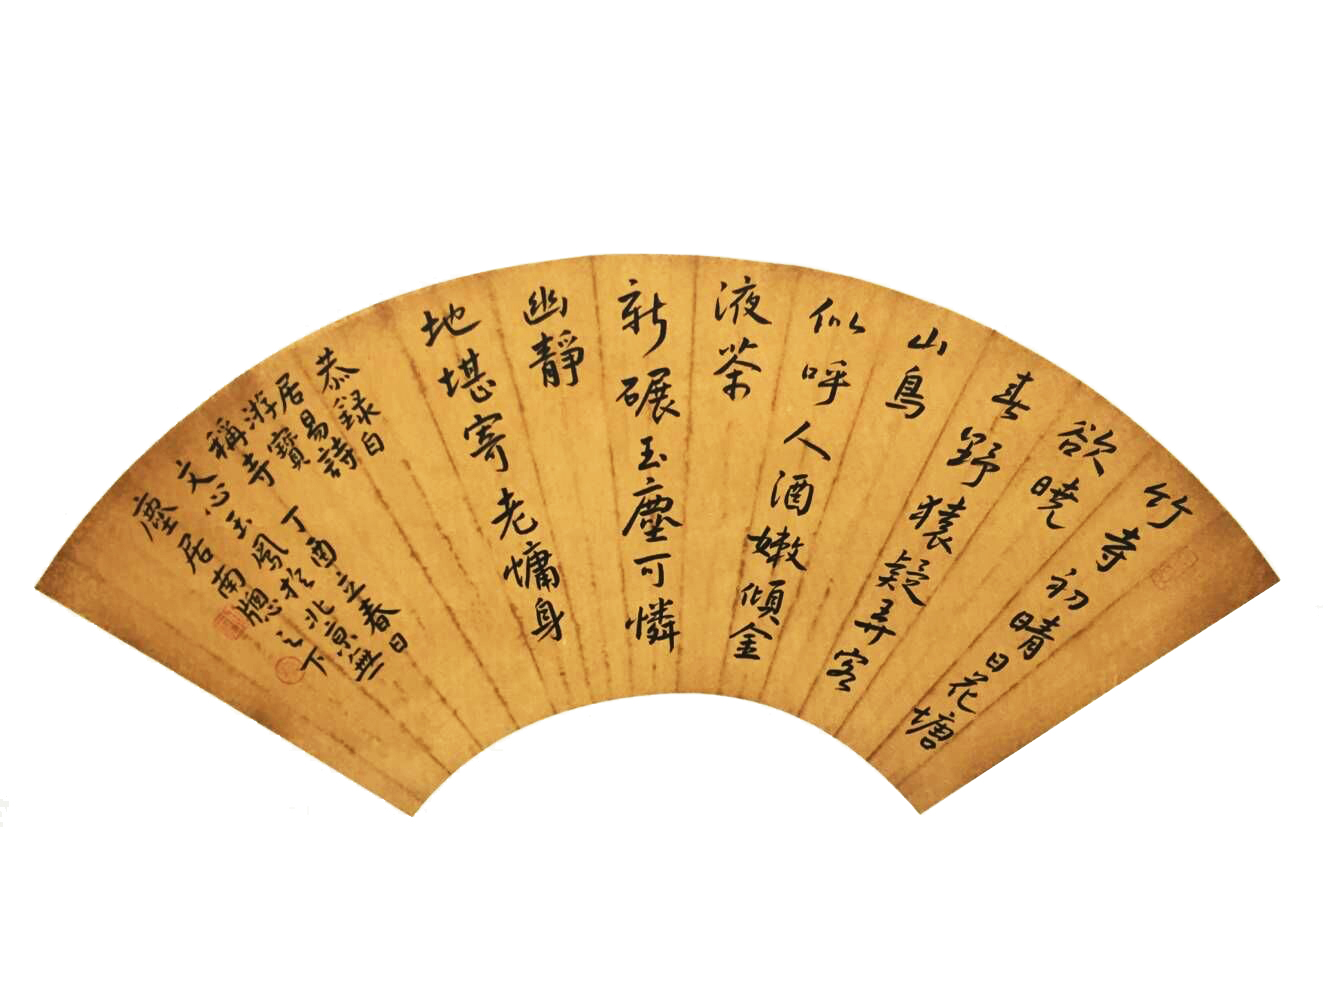 竹寺初晴日花塘
欲曉
春野猿疑弄客
山鳥
似呼人酒嫩傾金
液茶
新碾玉塵可憐
幽靜
地堪寄老慵身
恭録白
居易詩
游寶
稱寺 丁酉立春日
文心玉鳳於北京無
塵居南牕之下